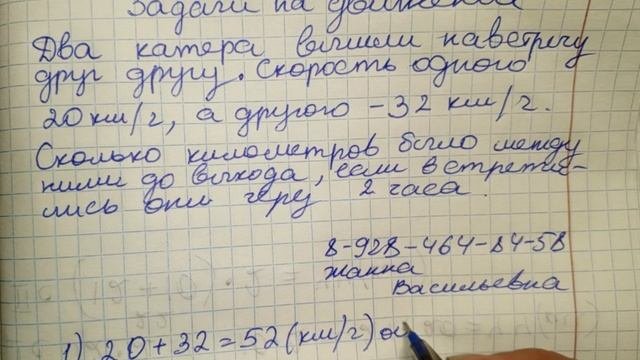 Задачи на движение
Два катера вышли навстречу
друг другу. Скорость одного
20 км/г, а другого - 32 км/г.
Сколько километров было между
ними до выхода, если встрети-
лись они через 2 часа.
8-928-464-84-58
Жанна
Васильевна
1) 20 + 32 = 52 (км/г)